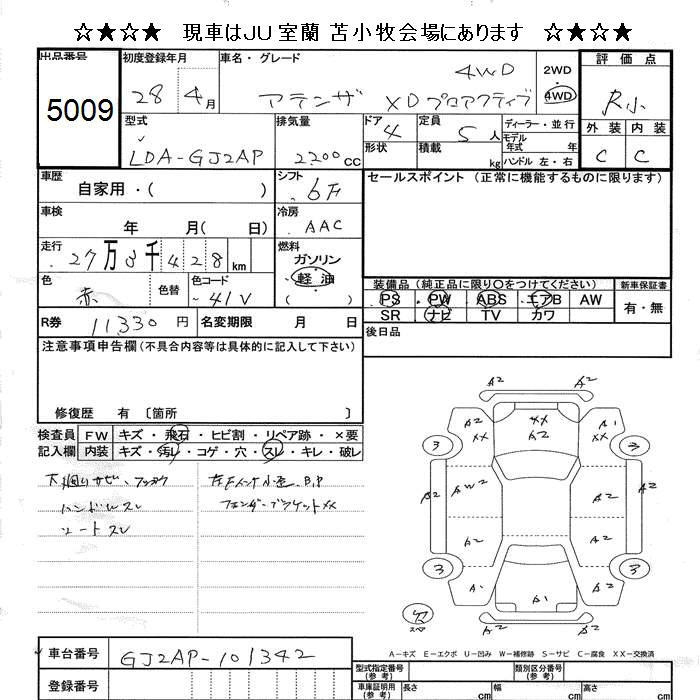 ☆★☆★ 現車はJU室蘭 苫小牧会場にあります ☆★☆★
出品番号 5009
初度登録年月 28 4月
車名・グレード 4WD アテンザ XDプロアクティブ
2WD 4WD
評価点 R小
外装 内装
C C
型式 LDA-GJ2AP
排気量 2200cc
ドア 4 形状
定員 5人
積載 kg
ディーラー・並行
モデル年式 年
ハンドル 左・右
車歴 自家用・( )
シフト 6F
セールスポイント (正常に機能するものに限ります)
車検 年 月( 日)
冷房 AAC
走行 27万 8千 4 2 8 km
燃料 ガソリン
・軽油
( )
色 赤 色替
色コード 41V
装備品 (純正品に限り○をつけてください)
新車保証書
PS PW ABS エアB AW
有・無
SR ナビ TV カワ
R券 11330円
名変期限 月 日
後日品
注意事項申告欄(不具合内容等は具体的に記入して下さい)
修復歴 有 〔箇所 〕
検査員 FW キズ・飛石・ヒビ割・リペア跡・×要
記入欄 内装 キズ・汚れ・コゲ・穴・スレ・キレ・破レ
下廻りサビ、
ハンドルスレ
シートスレ
B.P
フェンダーブラケットXX
A2 A2
XX
A2
A2
XX
A1
3 3
A2 AW2 A2 A2
A2 A2
3 3
A1 A1 A2
スペア
A-キズ E-エクボ U-凹み W-補修跡 S-サビ C-腐食 XX-交換済
車台番号 GJ2AP-101342
登録番号
型式指定番号(参考)
類別区分番号(参考)
車庫証明用(参考) 長さ cm 幅 cm 高さ cm